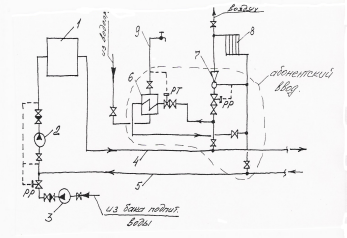 воздух
1
из водопр.
9
8
7
абонентский
ввод.
6
РТ
РР
2
4
5
РР
3
из бака подпит.
воды